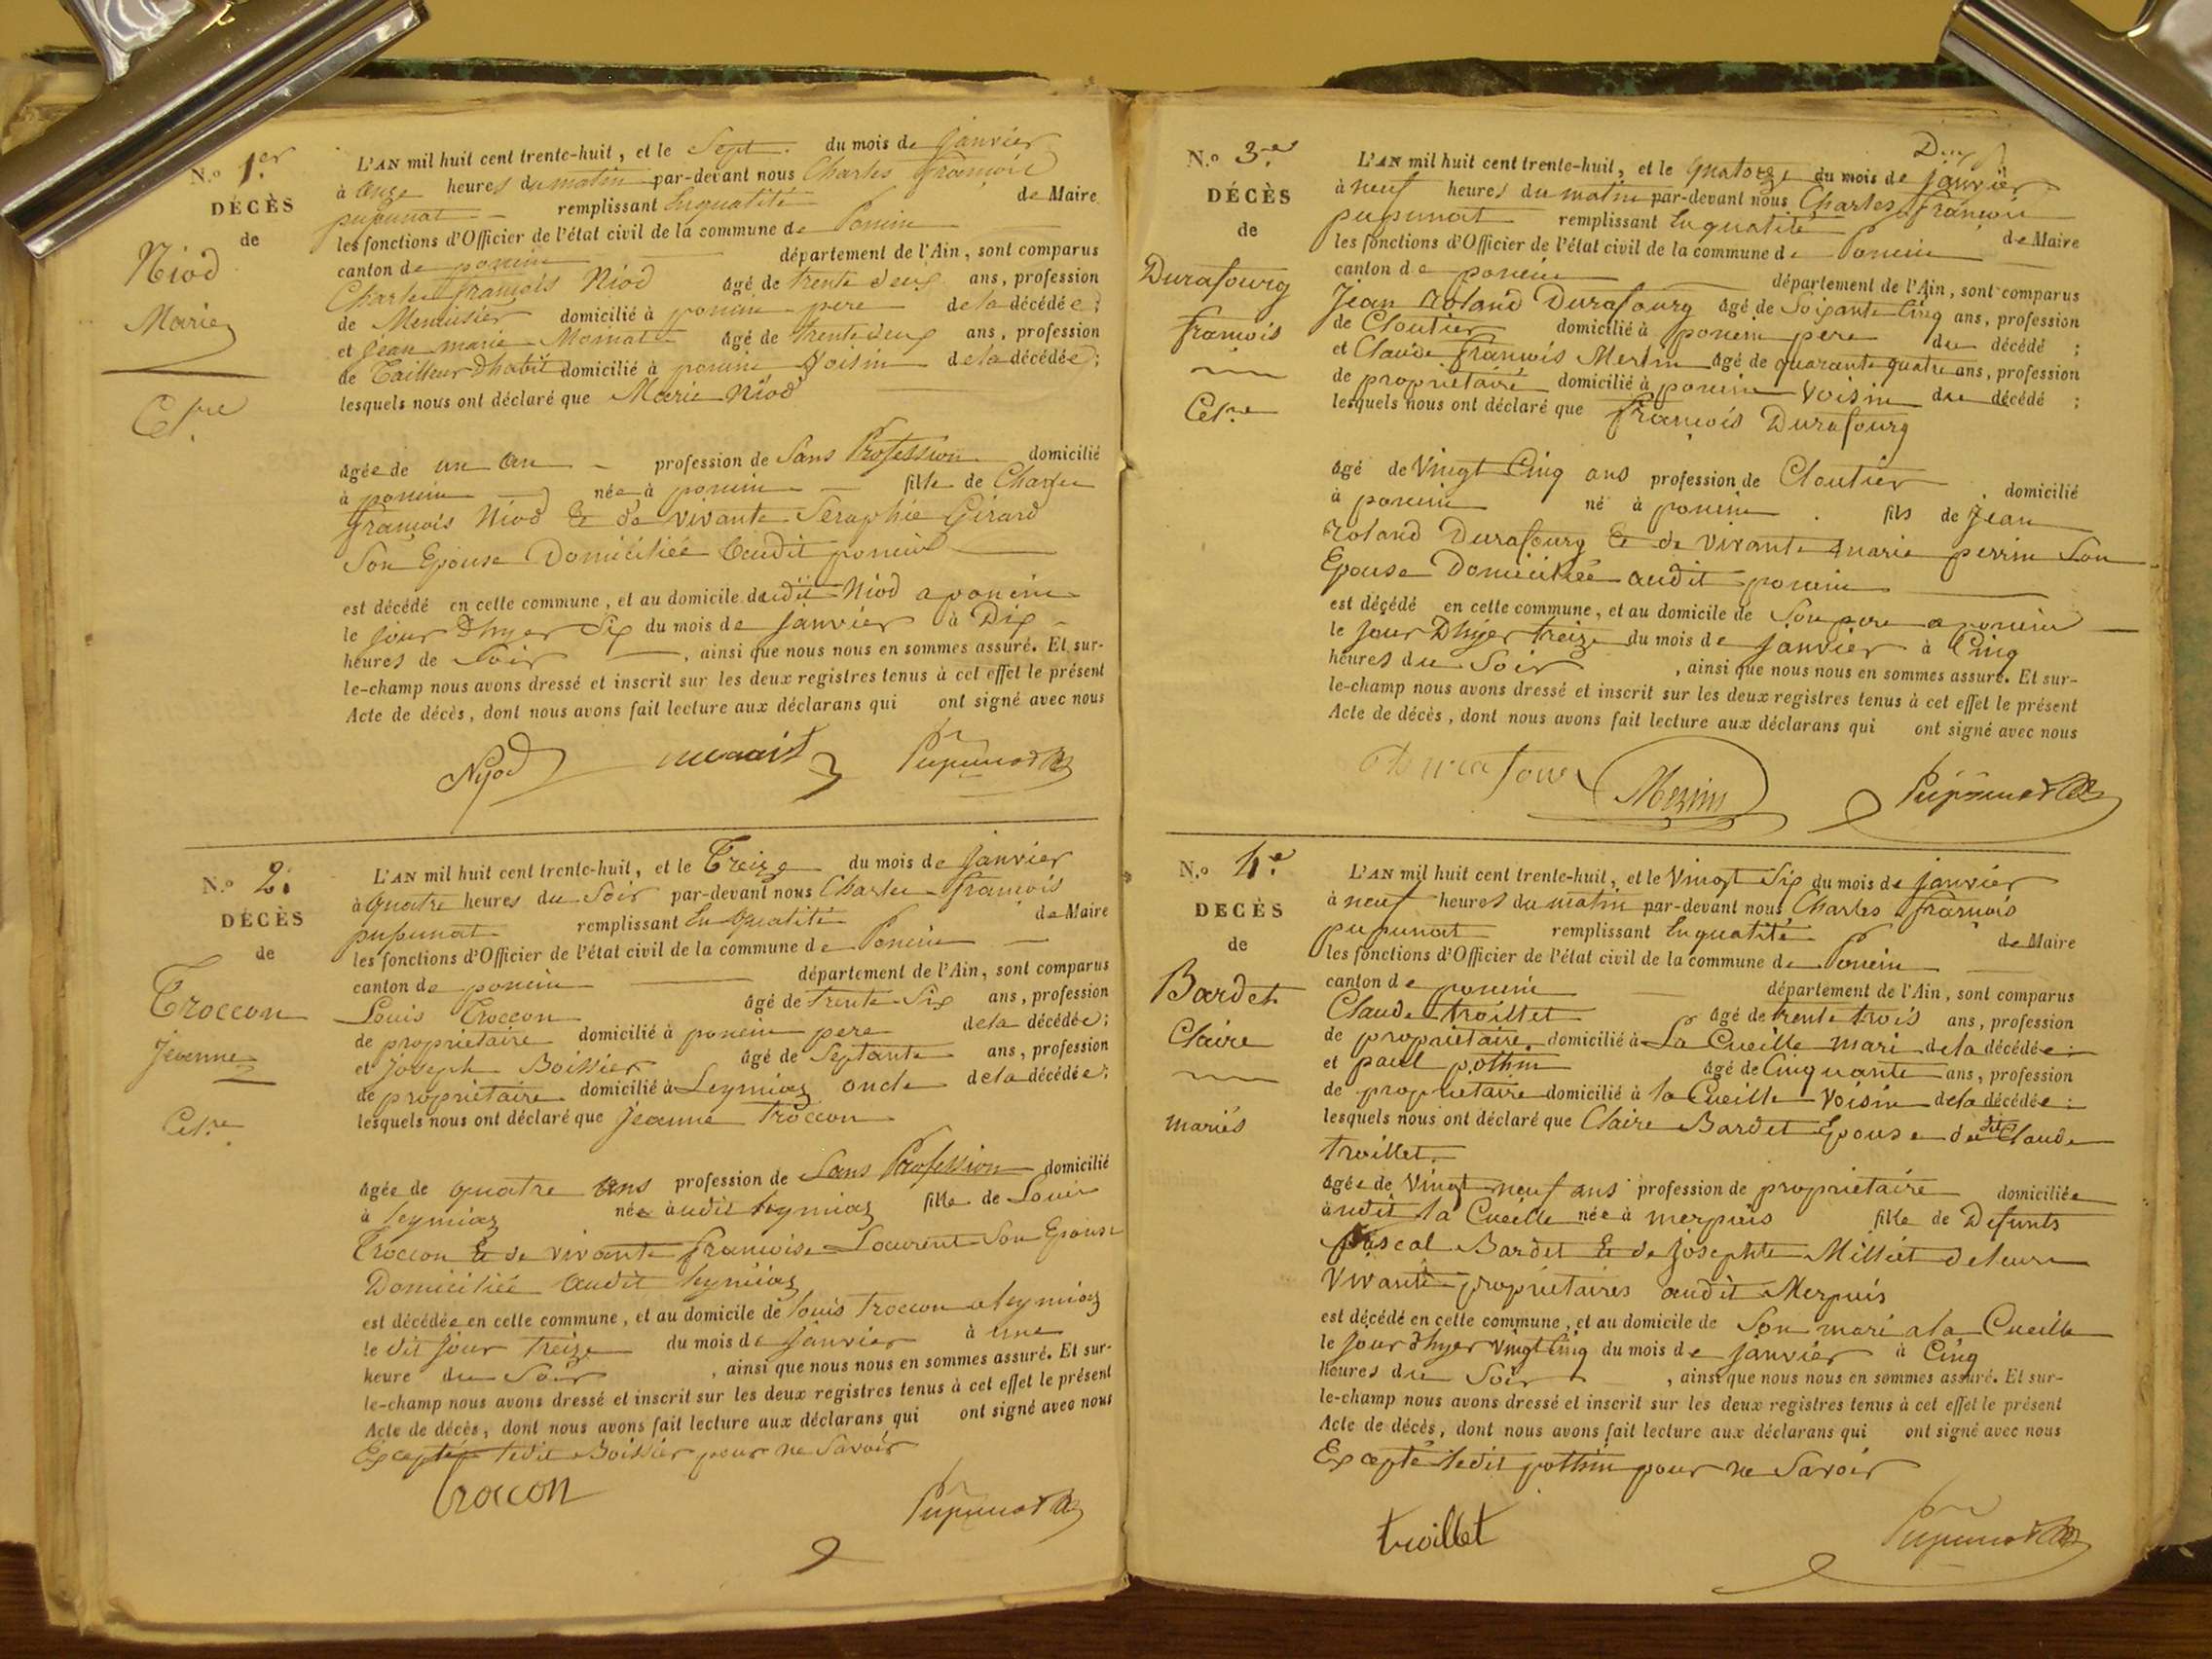 N.o 1.er
DÉCÈS
de
Niod
Marie
Cel.re
L'AN mil huit cent trente-huit, et le Sept du mois de janvier
à onze heures du matin par-devant nous Charles françois
pupunat remplissant En qualité de Maire
les fonctions d'Officier de l'état civil de la commune de Poncin
canton de poncin département de l'Ain, sont comparus
Charles françois Niod âgé de trente deux ans, profession
de Menuisier domicilié à poncin pere de la décédée;
et jean marie Moinat âgé de trente deux ans, profession
de Tailleur Dhabit domicilié à poncin Voisin de la décédée;
lesquels nous ont déclaré que Marie Niod
âgée de un an profession de Sans Profession domicilié
à poncin née à poncin fille de Charles
françois Niod & de vivante Seraphie Girard
Son Epouse Domiciliée audit poncin
est décédé en cette commune, et au domicile dudit Niod a poncin
le jour Dhyer Six du mois de janvier à Dix
heures de Soir, ainsi que nous nous en sommes assuré. Et sur-
le-champ nous avons dressé et inscrit sur les deux registres tenus à cet effet le présent
Acte de décès, dont nous avons fait lecture aux déclarans qui ont signé avec nous
Nyod Pupunat
N.o 2.
DÉCÈS
de
Troccon
Jeanne
Cel.re
L'AN mil huit cent trente-huit, et le Treize du mois de janvier
à quatre heures du Soir par-devant nous Charles françois
pupunat remplissant En qualité de Maire
les fonctions d'Officier de l'état civil de la commune de Poncin
canton de poncin département de l'Ain, sont comparus
Louis Troccon âgé de trente Six ans, profession
de propriétaire domicilié à poncin pere de la décédée;
et Joseph Boissier âgé de Septante ans, profession
de propriétaire domicilié à Leymiaz oncle de la décédée;
lesquels nous ont déclaré que jeanne troccon
âgée de quatre ans profession de Sans Profession domicilié
à leymiaz née audit leymiaz fille de Louis
Troccon & de vivante françoise Laurent Son Epouse
Domiciliée audit leymiaz
est décédée en cette commune, et au domicile de louis troccon a leymiaz
le dit jour treize du mois de janvier à une
heure du Soir, ainsi que nous nous en sommes assuré. Et sur-
le-champ nous avons dressé et inscrit sur les deux registres tenus à cet effet le présent
Acte de décès, dont nous avons fait lecture aux déclarans qui ont signé avec nous
Excepté ledit Boissier pour ne Savoir
troccon Pupunat
N.o 3.e
DÉCÈS
de
Durafourg
françois
Cel.re
L'AN mil huit cent trente-huit, et le quatorze du mois de janvier
à neuf heures du matin par-devant nous Charles françois
pupunat remplissant En qualité de Maire
les fonctions d'Officier de l'état civil de la commune de Poncin
canton de poncin département de l'Ain, sont comparus
Jean roland Durafourg âgé de Soixante Cinq ans, profession
de Cloutier domicilié à poncin pere du décédé;
et Claude françois Merlin âgé de quarante quatre ans, profession
de propriétaire domicilié à poncin Voisin du décédé;
lesquels nous ont déclaré que françois Durafourg
âgé de Vingt Cinq ans profession de Cloutier domicilié
à poncin né à poncin fils de jean
roland Durafourg & de vivante marie perrin Son
Epouse Domiciliée audit poncin
est décédé en cette commune, et au domicile de Son pere a poncin
le jour Dhyer treize du mois de janvier à Cinq
heures du Soir, ainsi que nous nous en sommes assuré. Et sur-
le-champ nous avons dressé et inscrit sur les deux registres tenus à cet effet le présent
Acte de décès, dont nous avons fait lecture aux déclarans qui ont signé avec nous
Pupunat
N.o 4.e
DECÈS
de
Bardet
Claire
mariés
L'AN mil huit cent trente-huit, et le Vingt Six du mois de janvier
à neuf heures du matin par-devant nous Charles françois
pupunat remplissant En qualité de Maire
les fonctions d'Officier de l'état civil de la commune de Poncin
canton de poncin département de l'Ain, sont comparus
Claude troillet âgé de trente trois ans, profession
de propriétaire domicilié à La Cueille mari de la décédée;
et paul pothin âgé de Cinquante ans, profession
de propriétaire domicilié à la Cueille Voisin de la décédée;
lesquels nous ont déclaré que Claire Bardet Epouse dudit Claude
troillet
âgée de Vingt neuf ans profession de propriétaire domiciliée
audit la Cueille née à merpuis fille de Defunts
pascal Bardet & de josephte Milliet de leurs
Vivants propriétaires audit Merpuis
est décédé en cette commune, et au domicile de Son mari a la Cueille
le jour dhyer vingt Cinq du mois de janvier à Cinq
heures du Soir, ainsi que nous nous en sommes assuré. Et sur-
le-champ nous avons dressé et inscrit sur les deux registres tenus à cet effet le présent
Acte de décès, dont nous avons fait lecture aux déclarans qui ont signé avec nous
Excepté ledit pothin pour ne Savoir
troillet Pupunat